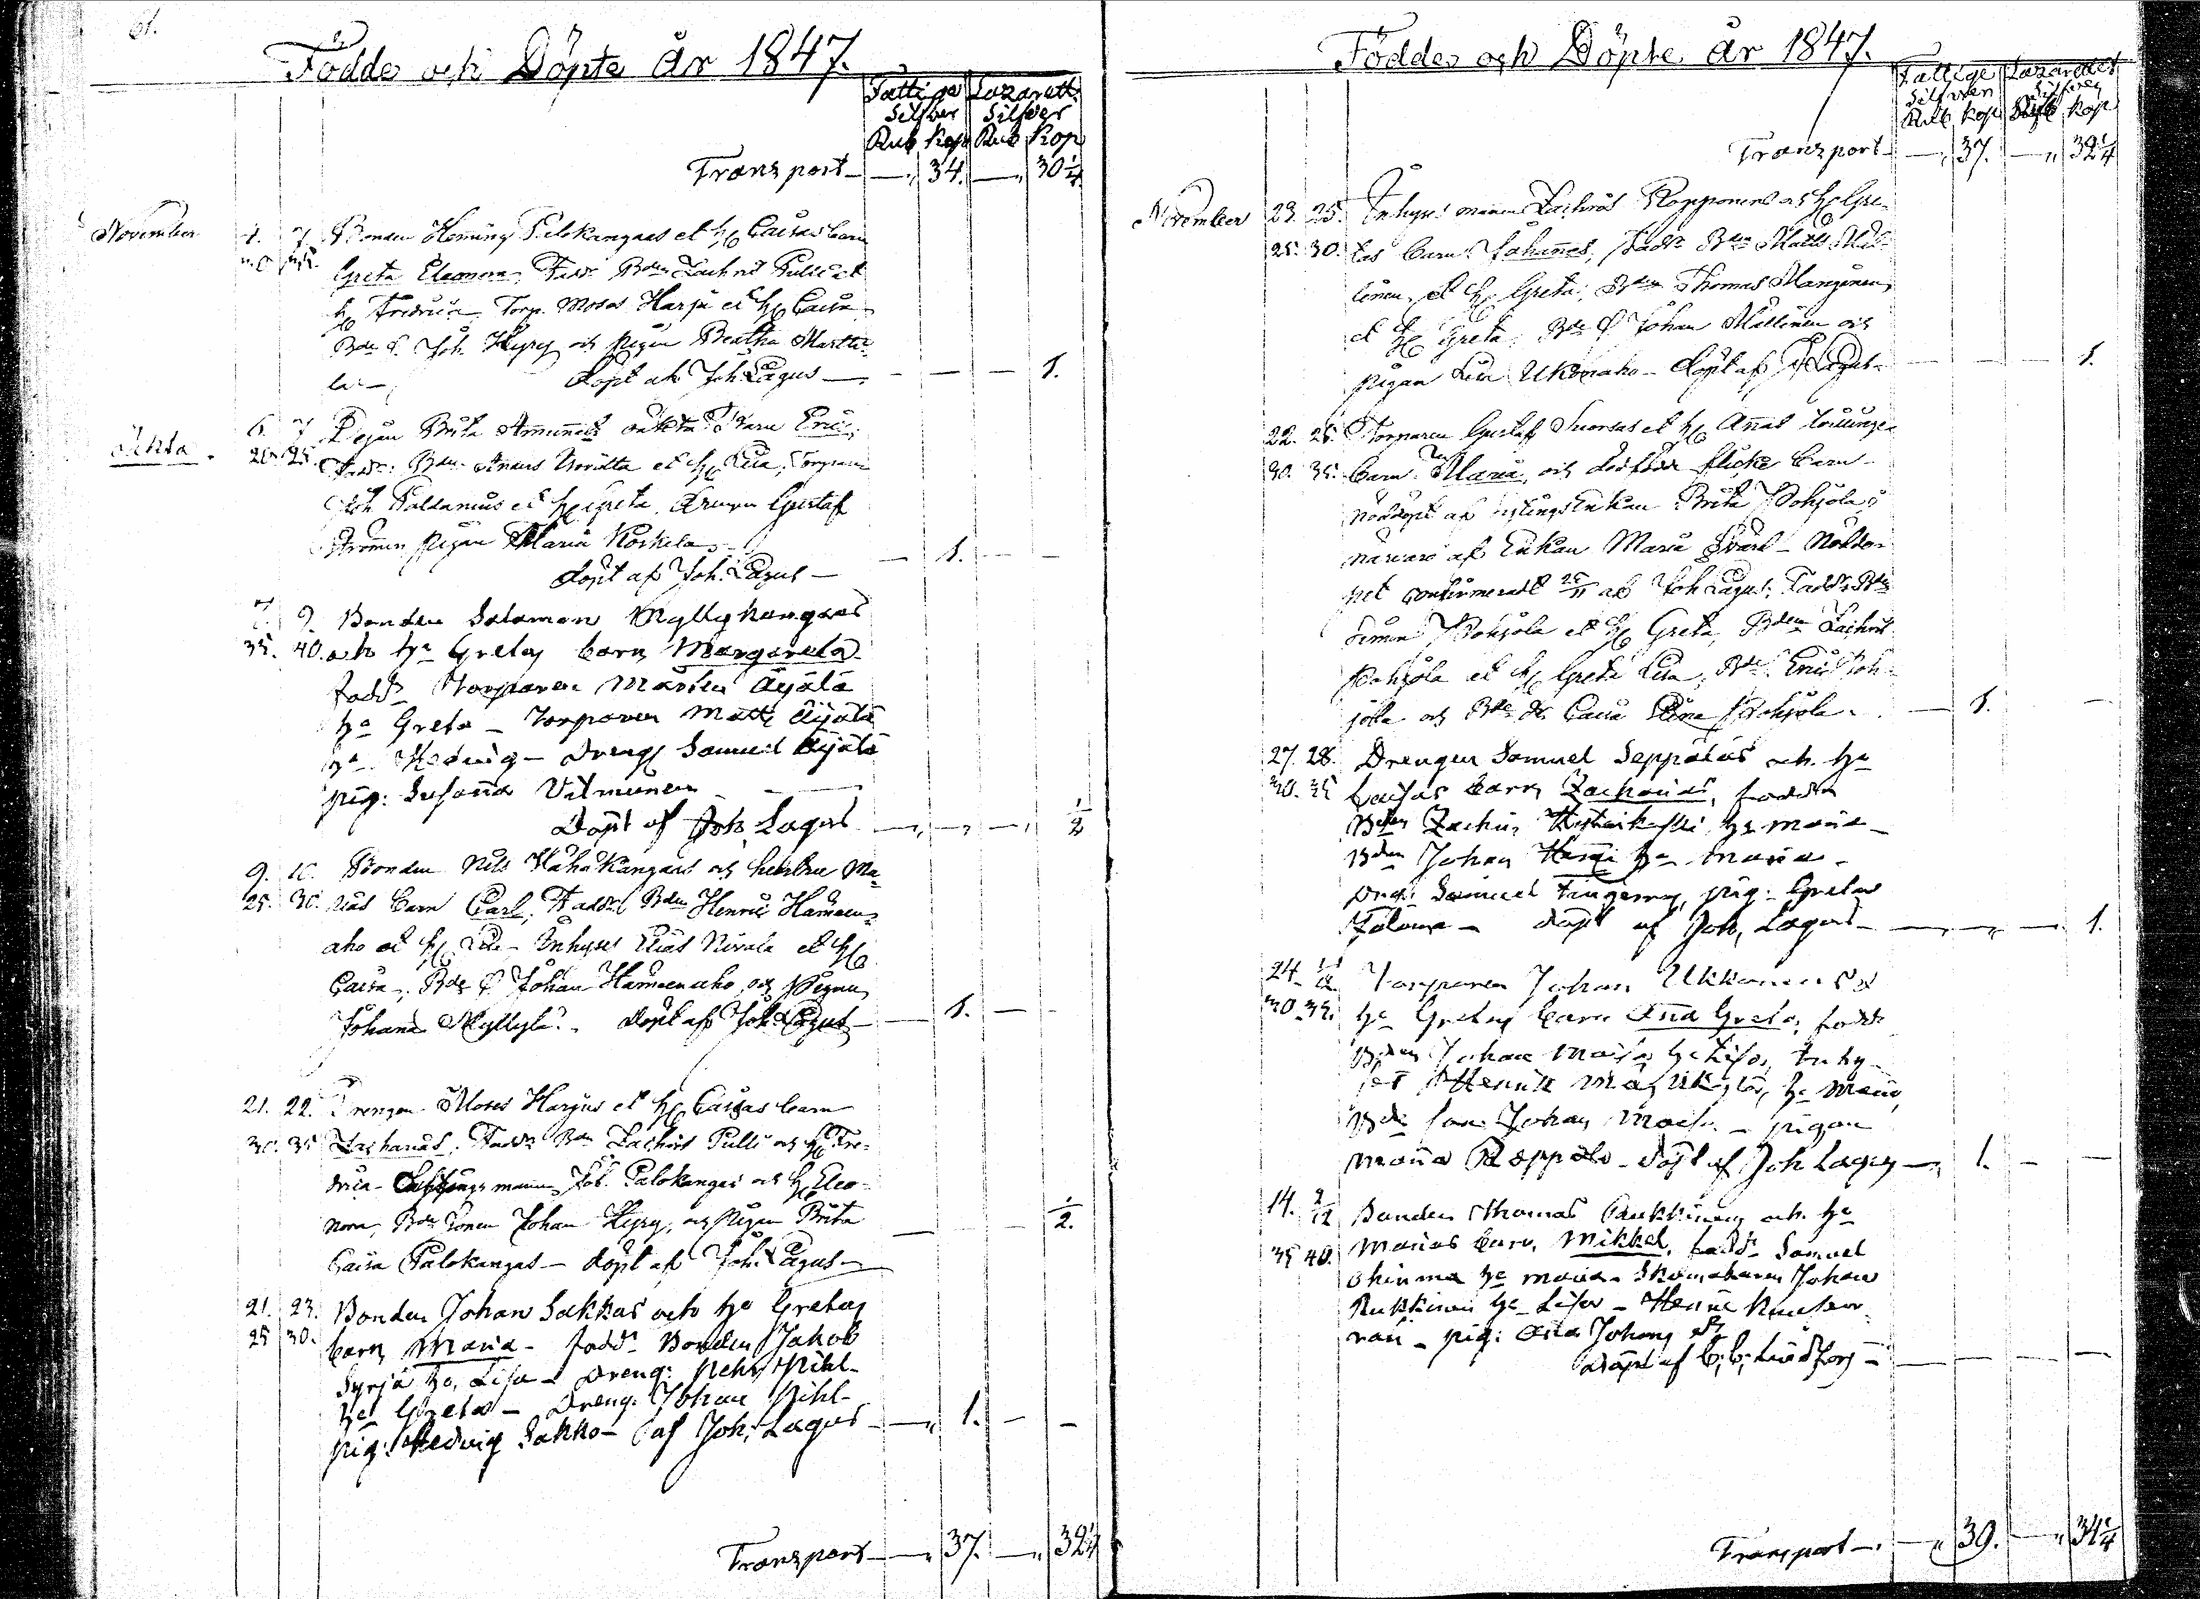 61.
Födde och Döpte År 1847.
Fattige Lazarett
Silfver Silfver
Rub Kop Rub Kop
Transport — 34. — 30 1/4
November
1. 7. Bonden Henning Palokangas et H. Caisas barn
Greta Eleonora, Fadd. Bden Zachris Pulli et
H. Fredrica, Torp. Moses Harju et H. Caisa
Bde S. Joh. Kyrö och Pigan Beatha Martti-
la —, döpt af Joh. Lagus — 1.
Oäkta.
6. 7. Pigan Brita oäkta Barn Eric,
26. 25. Fadd. Bden et H. Lisa, Torparen
Joh. Paldanius et H. Greta, Drengen Gustaf
Pigan Maria Koskela,
döpt af Joh. Lagus — 1.
7. 9. Bonden Salomon Myllykangas
35. 40. och H. Gretas barn Margareta
fadd. Torparen Mårten Äijälä
H. Greta — Torparen Matts Äijälä
H. Hedvig — Dreng Samuel Äijälä
pig: Susanna Vilmunen
Döpt af Joh. Lagus — 1/2
9. 10. Bonden Nils Hahokangas och hustru Ma-
25. 30. rias barn Carl, Fadd. Bden Henric Hameen-
aho et H. Lisa — Inhyses Elias Nivala et H.
Caisa, Bde S. Johan Hameenaho, och Pigan
Johanna Myllylä. — döpt af Joh. Lagus — 1.
21. 22. Drengen Moses Harjus et H. Caisas barn
30. 35. Zacharias, Fadd. Bden Zachris Pulli och H. Fre-
drica — Joh. Palokangas och H. Eleo-
nora, Bde Sonen Johan Kyrö, och Pigan Brita — 1/2.
Caisa Palokangas — döpt af Joh. Lagus —
21. 23. Bonden Johan Sakkos och H. Gretas
25 30. barn Maria — fadd. Bonden Jakob
Syrjä H. Lisa — Dreng: Pehr Pihl-
H. Greta — Dreng. Johan Pihl-
pig: Hedvig Sakko — af Joh. Lagus — 1. — —
Transport — 37. — 32 1/4
Födde och Döpte År 1847.
Fattige Lazarettet
Silfver Silfver
Rub Kop Rub Kop
Transport — 37. — 32 1/4
November 23. 25. Inhyses mannen Zachris Ropponens och H. Gre-
25. 30. tas barn Johannes, Fadd. Bden Matts Mäl-
linen et H. Greta, Bden Thomas Manginen,
et H. Greta, Bde S. Johan Mällinen och
pigan Lisa Ukonaho — döpt af J. Lagus — 1.
22. 25. Torparen Gustaf Suorsas et H. Annas tvillinge-
30. 35. barn Maria, och dödfödd flicke barn —
nöddöpt af Enkan Brita Pohjola i
närvaro af Enkan Maria Svärd — Nöddo-
pet confirmeradt 25/11 af Joh Lagus; Fadd. Bden
Simon Pohjola et H. Greta, Bden Zachris
Pohjola et H. Greta Lisa, Bde S. Eric Poh-
jola och Bde dr. Caisa Pohjola. — 1. —
27. 28. Drengen Samuel Seppälas och H.
30. 35 Caisas barn Zacharias, fadd.
Bden Zachris H. Maria —
Bden Johan H. Maria —
Dreng: Samuel pig: Greta
döpt af Joh, Lagus — 1.
24. 1/12 Torparen Johan Ukkonens et
30. 35. H. Gretas barn Anna Greta, fadd.
Bden Johan H. Lisa, Inhy-
ses Henrik H. Maria,
Bde son Johan — pigan
Maria — döpt af Joh Lagus — 1. — —
14. 2/12 Bonden Thomas och H.
35 40. Marias barn, Mikkel, fadd. Samuel
H. Maria — Skomakaren Johan
H. Lisa — Henric
— pig: Anna Johans dr
Döpt af —
Transport — 39. — 34 1/4